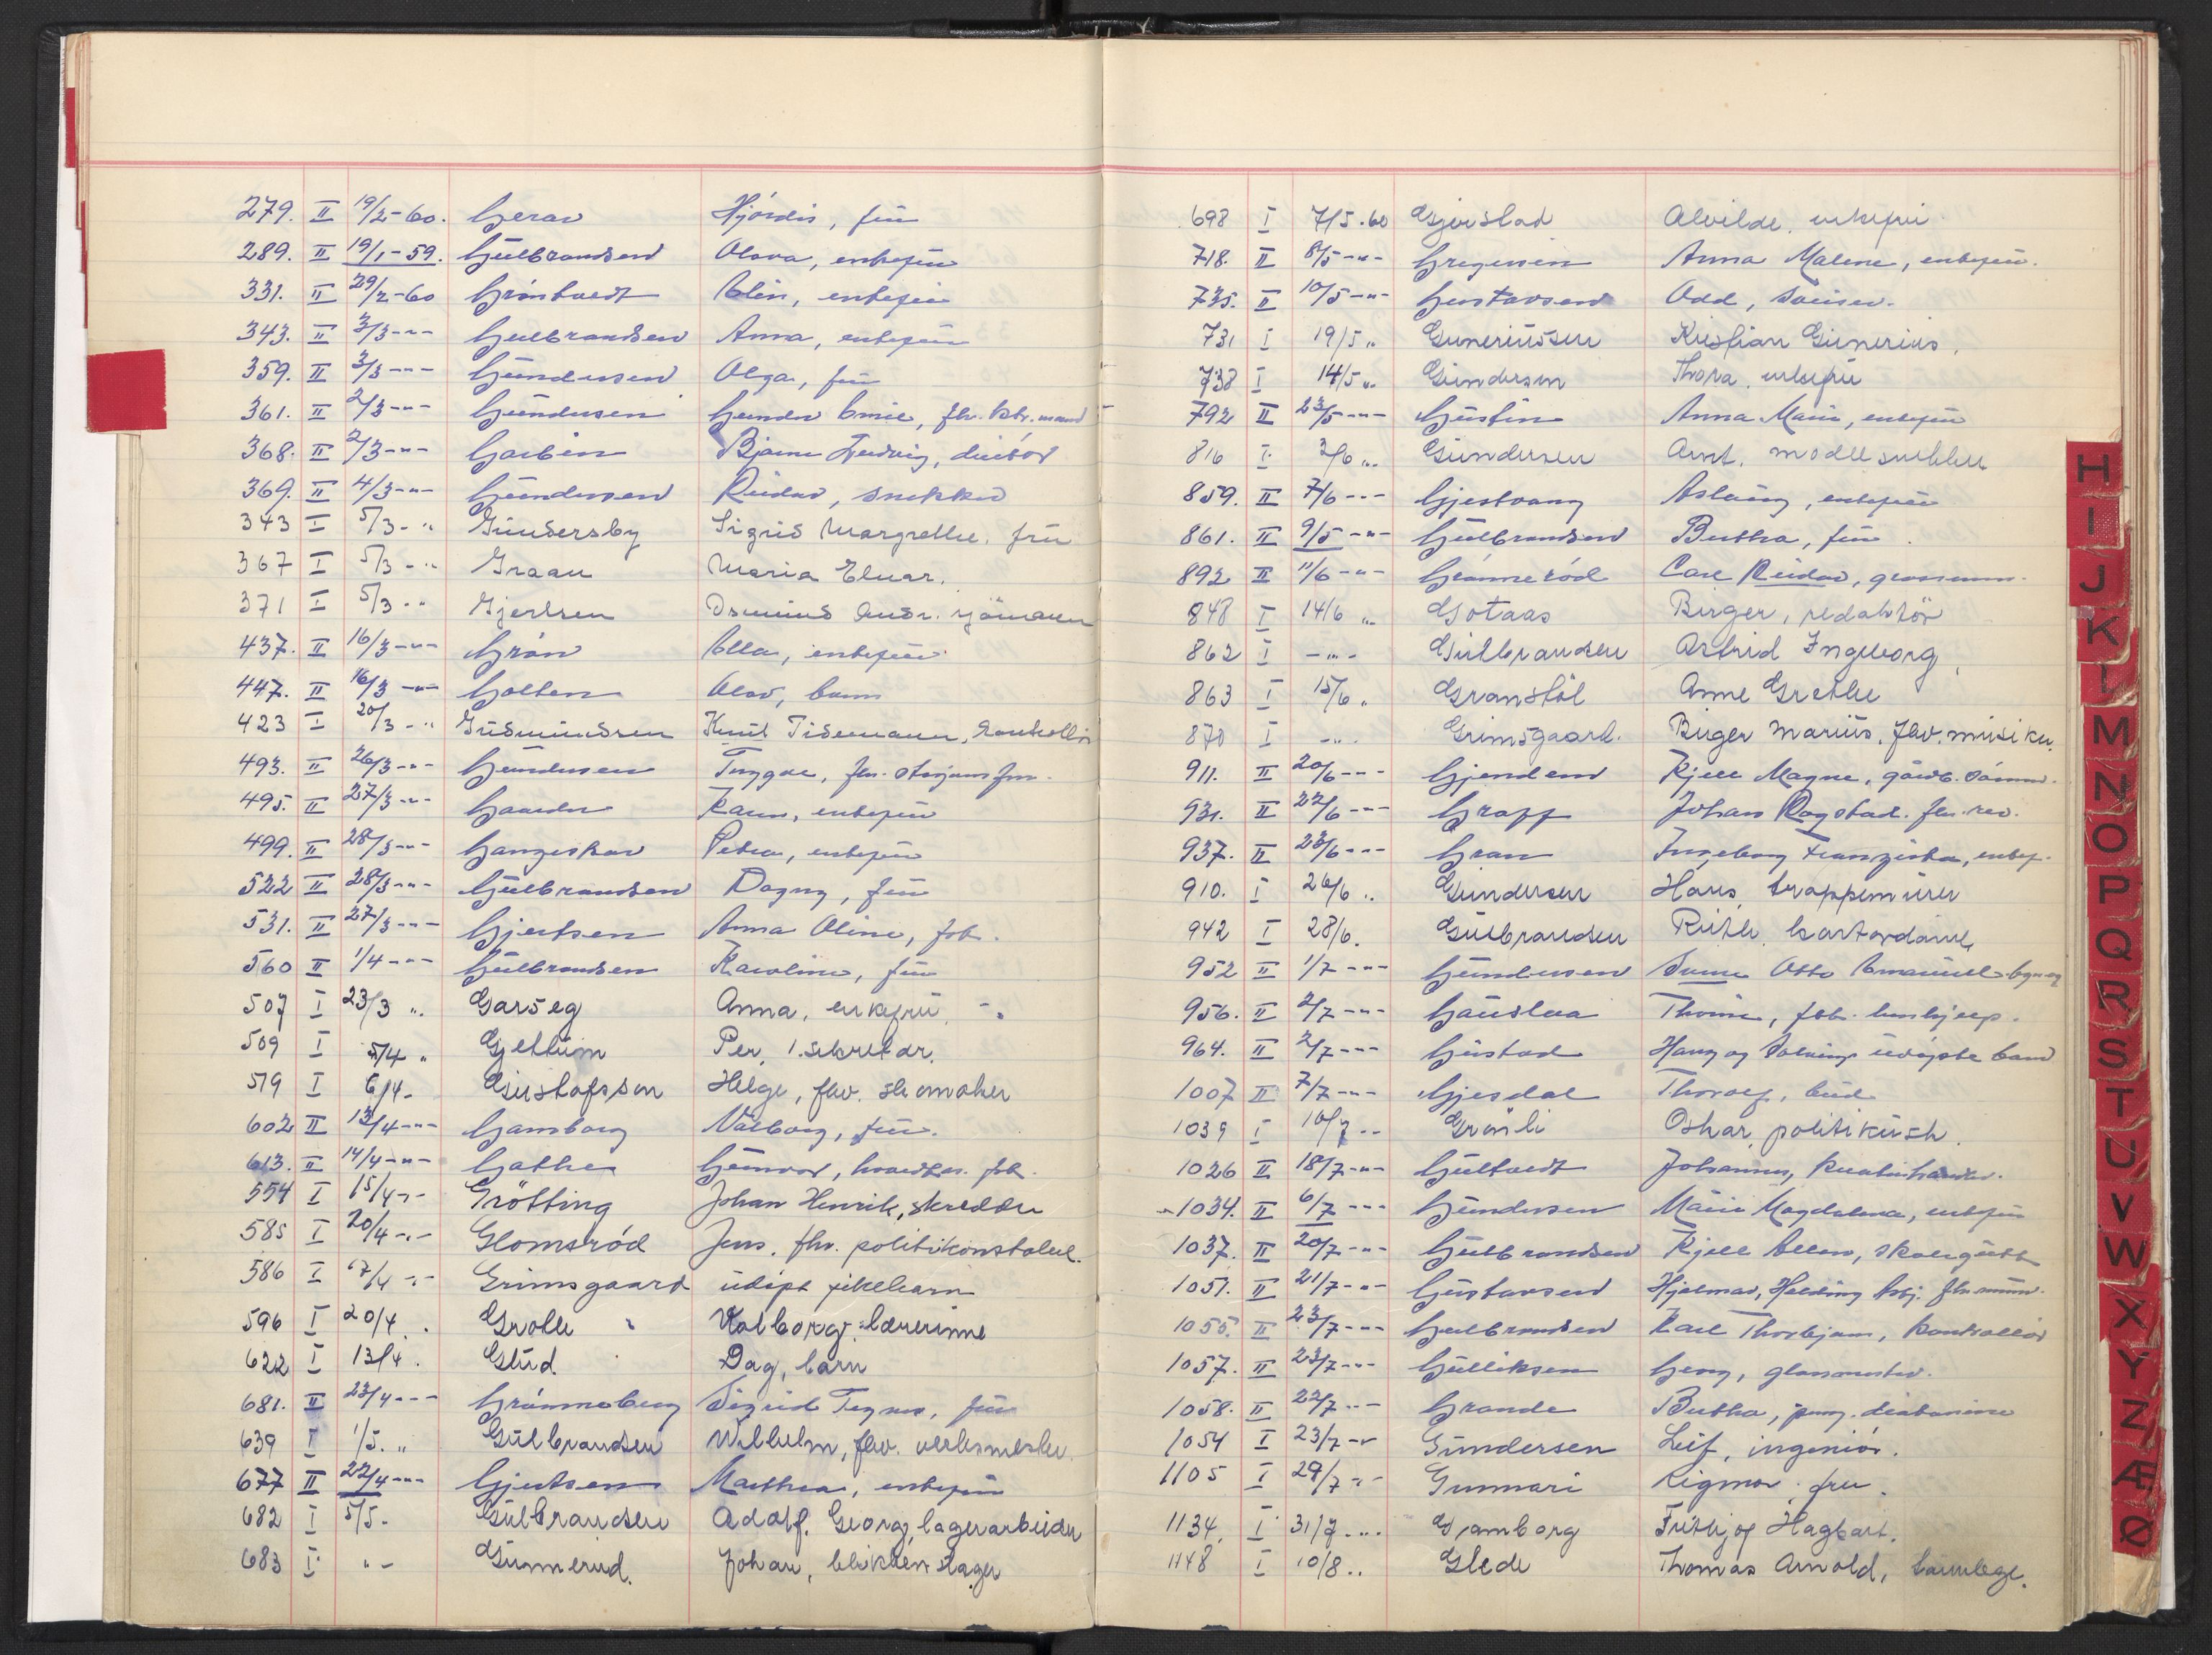 279. II 19/2-60. Gjerav Hjördis, frü
289. II 19/1-59. Gülbrandsen Olava, enkefrü
331. II 29/2-60 Gröntvedt Elin, enkefrü
343. II 3/3-"- Gulbrandsen Anna, enkefrü
359. II 3/3-"- Gündersen Olga, frü
361. II 2/3-"- Gündersen Gunder Emil, fhv.
368. II 2/3-"- Garbin Bjarne Ludvig, disitör
369. II 4/3-"- Gündersen Reidar, snekker
343 I 5/3-" Gündersby Sigrid Margrethe, frü
367 I 5/3-" Graau Maria Elvar.
371 I 5/3-" Gjertsen Andr. sjömann
437. II 16/3-"- Grön Ella, enkefrü
447. II 16/3-"- Golten Olav, barn
423 I 20/3-" Güdmündsen Knüt Tidemann, kontrollör
493. II 26/3-"- Gündersen Tryggve, fhv.
495. II 27/3-"- Gaarder Karen, enkefrü
499. II 28/3-"- Petra, enkefrü
522 II 28/3-"- Gülbrandsen Dagny, frü
531. II 27/3-"- Gjertsen Anna Oline, frk.
560 II 1/4-"- Gülbrandsen Karoline, frü
507 I 23/3 ". Garseg Anna, enkefrü
509 I 5/4 " Gjeltüm Per, 1. sekretær.
519 I 6/4- Güstafsson Helge, fhv. skomaker
602 II 13/4-"- Gamborg Valborg, frü.
613. II 14/4-"- Gathe Günvor, frk.
554 I 15/4-"- Grötting Johan Henrik, skredder
585 I 20/4-"- Glomsröd Jens, fhv. politikonstabel.
586 I 17/4-"- Grimsgaard üdöpt pikebarn
596 I 20/4. Grolle Valborg, lærerinne
622 I 13/4. Glüd. Dag, barn
681. II 23/4-"- Grönneberg Sigrid frü
639 I 1/5. " Gülbrandsen Wilhelm, fhv. verksmester
677 II 22/4-"- Gjertsen Marthea, enkefrü
682 I 5/5- Gülbrandsen Adolf Georg, lagerarbeider
683 I "- Günnerüd. Johan, blikkenslager
698 I 7/5-60 Gjerstad Alvilde, enkefrü
718. II 8/5-"- Gregersen Anna Malene, enkefrü.
735. II 10/5-"- Gustavsen Odd,
731 I 19/5 " Guneriüssen Kristian Günerius.
738 I 14/5 " Gündersen Thora, enkefrü
792 II 23/5-"- Güstin Anna Marie, enkefrü
816 I 3/6 " Gündersen Arnt, modellsnekker
859. II 7/6-"- Gjestvang Aslaüg, enkefrü
861. II 9/5-"- Gülbrandsen Bertha, frü.
892 II 11/6-"- Grönneröd Carl Reidar, grosserer.
848 I 14/6 " Gotaas Birger, redaktör
862 I -"- Gülbrandsen Astrid Ingeborg
863 I 15/6 " Granstöl Anne Grethe
870 I -"- Grimsgaard. Birger Mariüs, fhv. müsiker
911. II 20/6-"- Gjendem Kjell Magne,
931. II 22/6-"- Grapp Johan Rogstad, fhv. rev.
937. II 23/6-"- Gran Ingeborg Franziska, enkef.
910. I 26/6 " Gündersen Hans, trappemürer
942 I 28/6. Gülbrandsen Rüth, kontordame
952 II 1/7-"- Gündersen Otto Emanüel
956. II 2/7-"- Gaüslaa
964. II 2/7-"- Güstad Haug og Solveigs üdöpte barn
1007 II 7/7-"- Gjesdal Thorolf, büd
1039 I 16/7-" Grönli Oskar, politiküsk.
1026 II 18/7-"- Gültvedt Johannes,
1034. II 6/7-"- Gündersen Marie Magdalena, enkefrü
1037. II 20/7-"- Gülbrandsen Kjell Allen, skolegütt
1051. II 21/7-"- Güstavsen Hjalmar,
1055. II 23/7-"- Gulbrandsen Karl Thorbjørn, kontrollör
1057. II 23/7-"- Gülliksen Georg, glassmester.
1058. II 22/7-"- Grande Bertha,
1054 I 23/7-" Gündersen Leif, ingeniör.
1105 I 29/7-"- Gunnari Rigmor, fru.
1134. I 31/7-"- Gjamborg Fritjof Hagbart.
1148 I 10/8.. Glede Thomas Arnold, tannlege.
H
I
J
K
L
M
N
O
P
Q
R
S
T
U
V
W
X
Y
Z
Æ
Ø